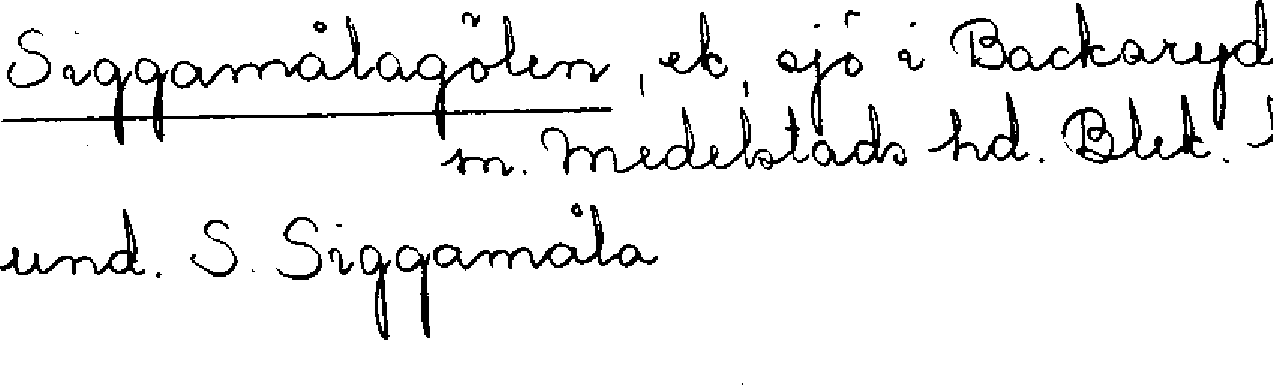 Siggamålagölen, ek, sjö i Backaryd
m. Medelstads hd. Blek.
und. S. Siggamåla